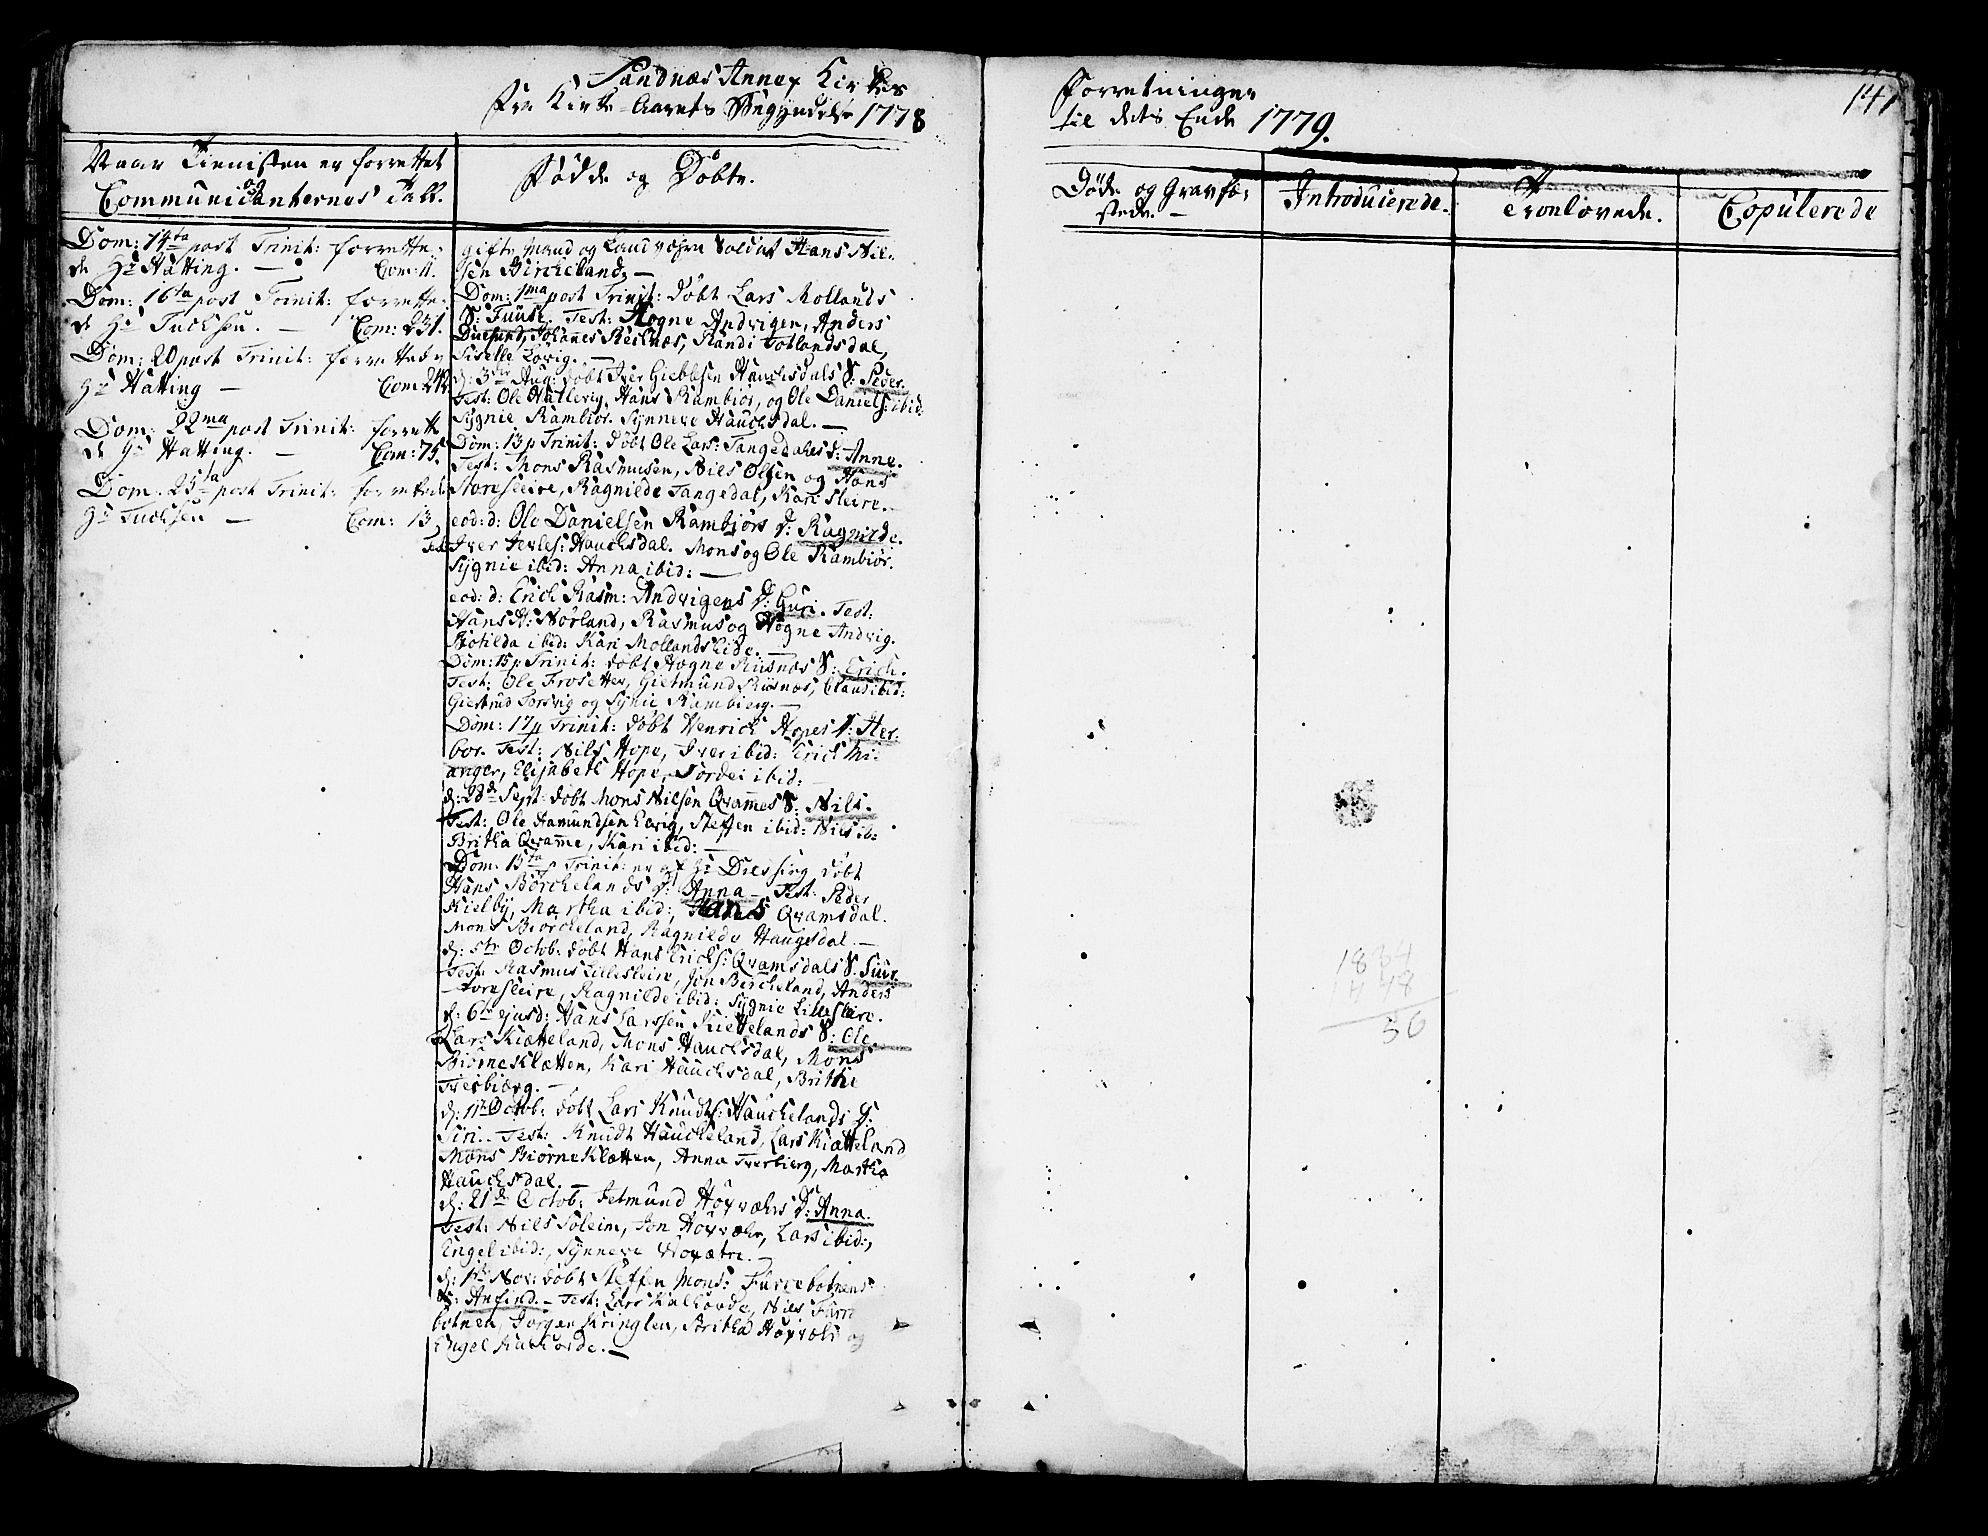 Sandnæs Annex Kirkes
Forretninger
147
fra Kirke-Aarets Begyndelse 1778
til dets Ende 1779.
Naar Tienisten er forrettet
og
Communicanternes Tall.
Fødde og Döbte.
Døde og Gravfæ-
stede. -
Introducerede.
Trolovede.
Copulerede
Dom: 14ta post Trinit: forrette-
de Hr Hatting. - Com: 4.
Dom: 16ta post Trinit: forrette-
de Hr Tuchsen. - Com: 231.
Dom: 20 post Trinit: forrettede
Hr Hatting - Com 242
Dom: 22ma post Trinit: forrette
de Hr Hatting. - Com: 75.
Dom. 25ta post Trinit: forrettede
Hr Tuchsen - Com: 13
gifte Mand og Landværn Soldat Hans Nil-
sen Bircheland. -
Dom: 1ma post Trinit: døbt Lars Mollands
S: Fuuse. Test: Hogne Andvigen, Anders
Duesund, Johannes Reisnæs, Randi Totlandsdal,
Siselle Lovig. -
d: 3die Aug: døbt Iver Giebbsen Hauchsdals S: Peder.
Test: Ole Hatlevig, Hans Rambiør, og Ole Daniels: ibid:
Sygnie Rambiør. Synneve Hauchsdal. -
Dom: 13 p Trinit: døbt Ole Lars: Tangedahls D: Anne.
Test: Mons Rasmusen, Nils Olsen og Hans
Storesleire, Ragnilde Tangedal, Kari Sleire. -
eod: d: Ole Danielsen Rambiørs D: Ragnilde.
Test Iver Jevles: Hauchsdal. Mons og Ole Rambiør.
Sygnie ibid: Anna ibid: -
eod: d: Erich Rasm: Andvigens D: Guri. Test:
Hans H: Nørland, Rasmus og Hogne Andvig.
Botilda ibid: Kari Mollands Lide. -
Dom: 15 p Trinit: døbt Hogne Riisnæs S: Erich.
Test: Ole Frosetter, Gietmund Riisnæs, Claus ibid:
Giertrud Torsvig og Synie Rambierg. -
Dom: 17 p Trinit: døbt Henrich Hopes D: Her-
bor. Test: Nils Hope, Iver ibid: Erich Mi-
anger, Elisabeth Hope, Tordei ibid: -
d: 28de Sept: døbt Mons Nilsen Qvammes S: Nils.
Test: Ole Hamundsen Evrig, Steffen ibid: Nils ib:
Britha Qvamme, Kari ibid: -
Dom: 15ta p Trinit: er af Hr Diessing døbt
Hans Børchelands D: Anna - Test: Peder
Kielby, Martha ibid:, Hans Qvamsdal.
Mons Biorcheland, Ragnilde Haugsdal. -
d: 5te Octob: døbt Hans Erichs: Qvamsdals S. Siur
Test: Rasmus Lillesleire, Jon Bircheland, Anders
Storesleire, Ragnilde ibid: Sygnie Lillesleire.
d: 6te ejusd: Hans Larssen Kiettelands S: Ole.
Lars Kiætteland, Mons Hauchsdal, Mons
Biørneklætten, Kari Hauchsdal, Brithe
Tverbiærg. -
d: 11te Octob: døbt Lars Knudts: Hauchelands D:
Siri. - Test: Knudt Haucheland, Lars Kiætteland
Mons Biørneklætten, Anna Tverbierg, Martha
Hauchsdal. -
d: 21de Octob: Jetmund Høyvæhrs D: Anna.
Test: Nils Soleim, Jon Høyvæhr, Lars ibid:,
Engel ibid:, Synneve
d: 1te Nov: døbt Steffen Mons: Furrebotnens
S: Anfind. - Test: Lars Kalhovde, Nils Furre
botnen, Jørgen Kringlen, Britha Høyvæhr og
Engel Kalhovde. -
1834
1778
56